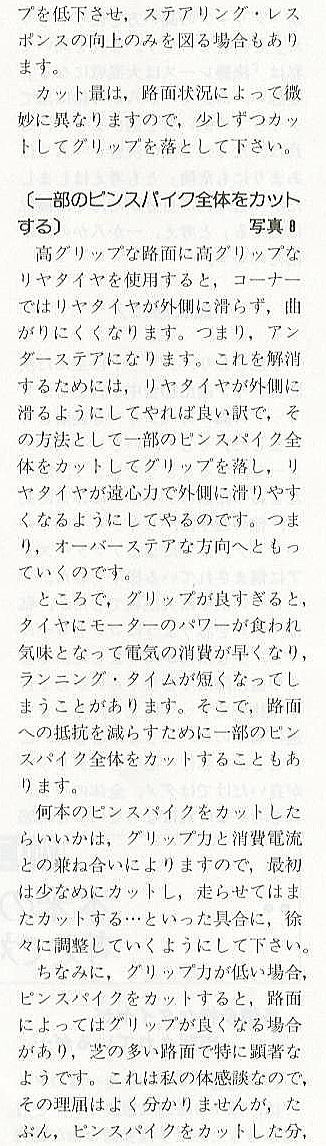 プを低下させ，ステアリング・レス
ポンスの向上のみを図る場合もあり
ます。
　カット量は，路面状況によって微
妙に異なりますので，少しずつカッ
トしてグリップを落として下さい。
〔一部のピンスパイク全体をカット
する〕　写真8
　高グリップな路面に高グリップな
リヤタイヤを使用すると，コーナー
ではリヤタイヤが外側に滑らず，曲
がりにくくなります。つまり，アン
ダーステアになります。これを解消
するためには，リヤタイヤが外側に
滑るようにしてやれば良い訳で，そ
の方法として一部のピンスパイク全
体をカットしてグリップを落し，リ
ヤタイヤが遠心力で外側に滑りやす
くなるようにしてやるのです。つま
り，オーバーステアな方向へともっ
ていくのです。
　ところで，グリップが良すぎると，
タイヤにモーターのパワーが食われ
気味となって電気の消費が早くなり，
ランニング・タイムが短くなってし
まうことがあります。そこで，路面
への抵抗を減らすために一部のピン
スパイク全体をカットすることもあ
ります。
　何本のピンスパイクをカットした
らいいかは，グリップ力と消費電流
との兼ね合いによりますので，最初
は少なめにカットし，走らせてはま
たカットする…といった具合に，徐
々に調整していくようにして下さい。
　ちなみに，グリップ力が低い場合，
ピンスパイクをカットすると，路面
によってはグリップが良くなる場合
があり，芝の多い路面で特に顕著な
ようです。これは私の体感談なので，
その理屈はよく分かりませんが，た
ぶん，ピンスパイクをカットした分，